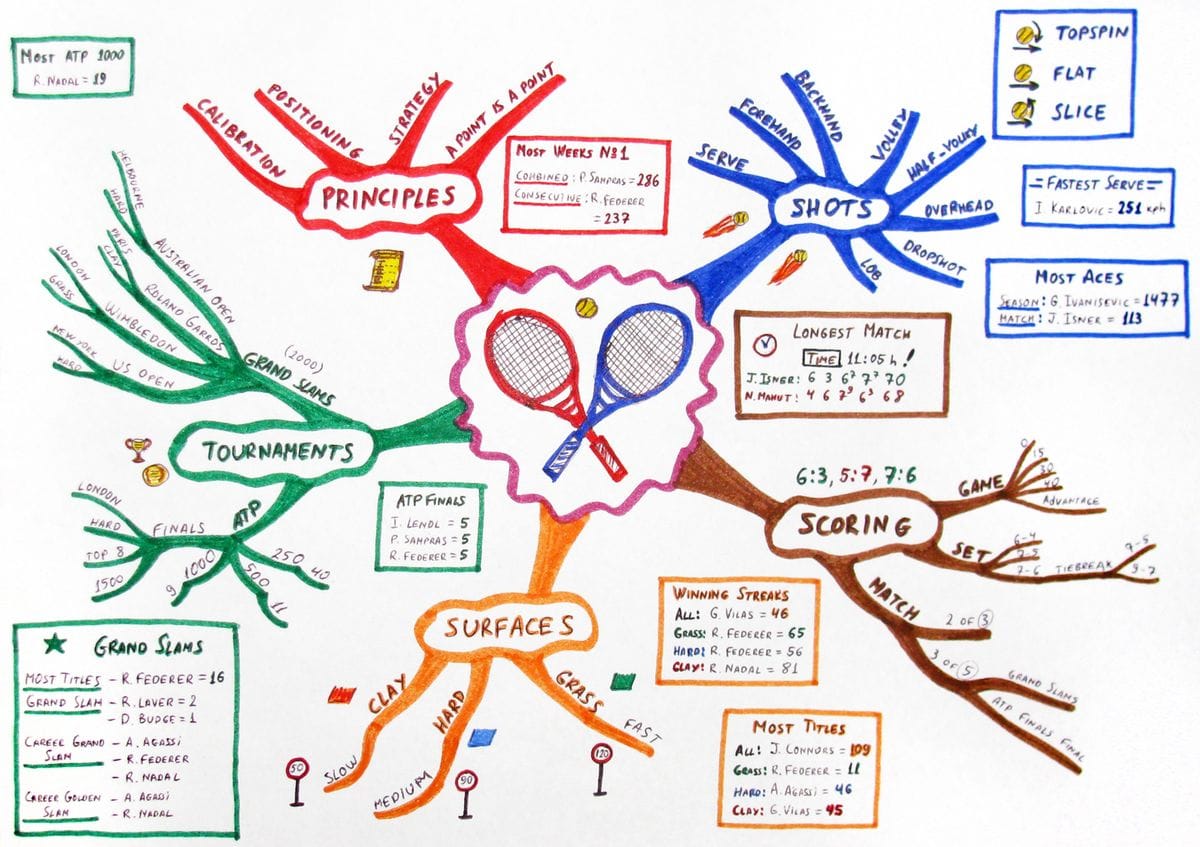 Most ATP 1000
R. Nadal = 19
PRINCIPLES
CALIBRATION
POSITIONING
STRATEGY
A POINT IS A POINT
Most Weeks №1
Combined: P. Sampras = 286
Consecutive: R. Federer
= 237
SHOTS
SERVE
FOREHAND
BACKHAND
VOLLEY
HALF-VOLLEY
OVERHEAD
DROPSHOT
LOB
TOPSPIN
FLAT
SLICE
=Fastest Serve=
I. Karlovic = 251 kph
Most Aces
Season: G. Ivanisevic = 1477
Match: J. Isner = 113
Longest Match
Time 11:05 h!
J. Isner: 6 3 6⁷ 7⁷ 70
N. Mahut: 4 6 7⁹ 6³ 68
TOURNAMENTS
GRAND SLAMS
(2000)
AUSTRALIAN OPEN
MELBOURNE
HARD
ROLAND GARROS
PARIS
CLAY
WIMBLEDON
LONDON
GRASS
US OPEN
NEW YORK
HARD
ATP
FINALS
LONDON
HARD
TOP 8
1500
1000
9
500
11
250
40
ATP Finals
I. Lendl = 5
P. Sampras = 5
R. Federer = 5
SCORING
6:3, 5:7, 7:6
GAME
0
15
30
40
ADVANTAGE
SET
6-4
7-5
7-6
TIEBREAK
7-5
9-7
MATCH
2 OF 3
3 OF 5
GRAND SLAMS
ATP FINALS FINAL
SURFACES
CLAY
SLOW
50
HARD
MEDIUM
90
GRASS
FAST
120
Winning Streaks
All: G. Vilas = 46
Grass: R. Federer = 65
Hard: R. Federer = 56
Clay: R. Nadal = 81
Most Titles
All: J. Connors = 109
Grass: R. Federer = 11
Hard: A. Agassi = 46
Clay: G. Vilas = 45
Grand Slams
Most Titles - R. Federer = 16
Grand Slam - R. Laver = 2
- D. Budge = 1
Career Grand - A. Agassi
Slam - R. Federer
- R. Nadal
Career Golden - A. Agassi
Slam - R. Nadal